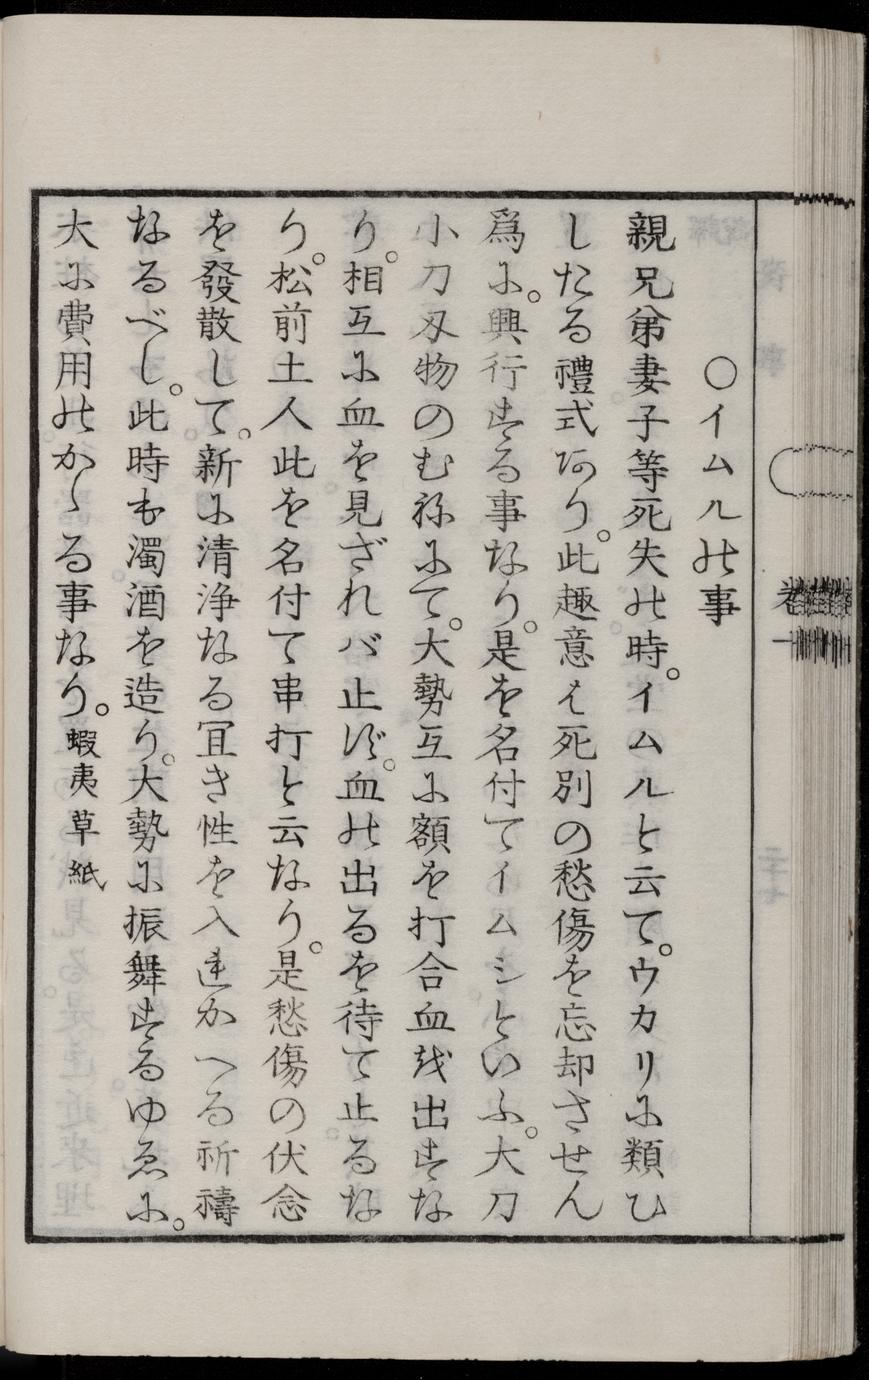 〇イムルの事
親兄弟妻子等死失の時。イムルと云て。ウカリに類ひ
したる禮式あり。此趣意は死別の愁傷を忘却させん
爲に。興行する事なり。是を名付てイムシといふ。大刀
小刀刄物のむねにて。大勢互に額を打合血を出すな
り。相互に血を見ざれバ止ず。血の出るを待て止るな
り。松前土人此を名付て串打と云なり。是愁傷の伏念
を發散して。新に清浄なる冝き性を入違かへる祈禱
なるべし。此時も濁酒を造り。大勢に振舞するゆゑに。
大に費用のかゝる事なり。蝦夷草紙
卷一